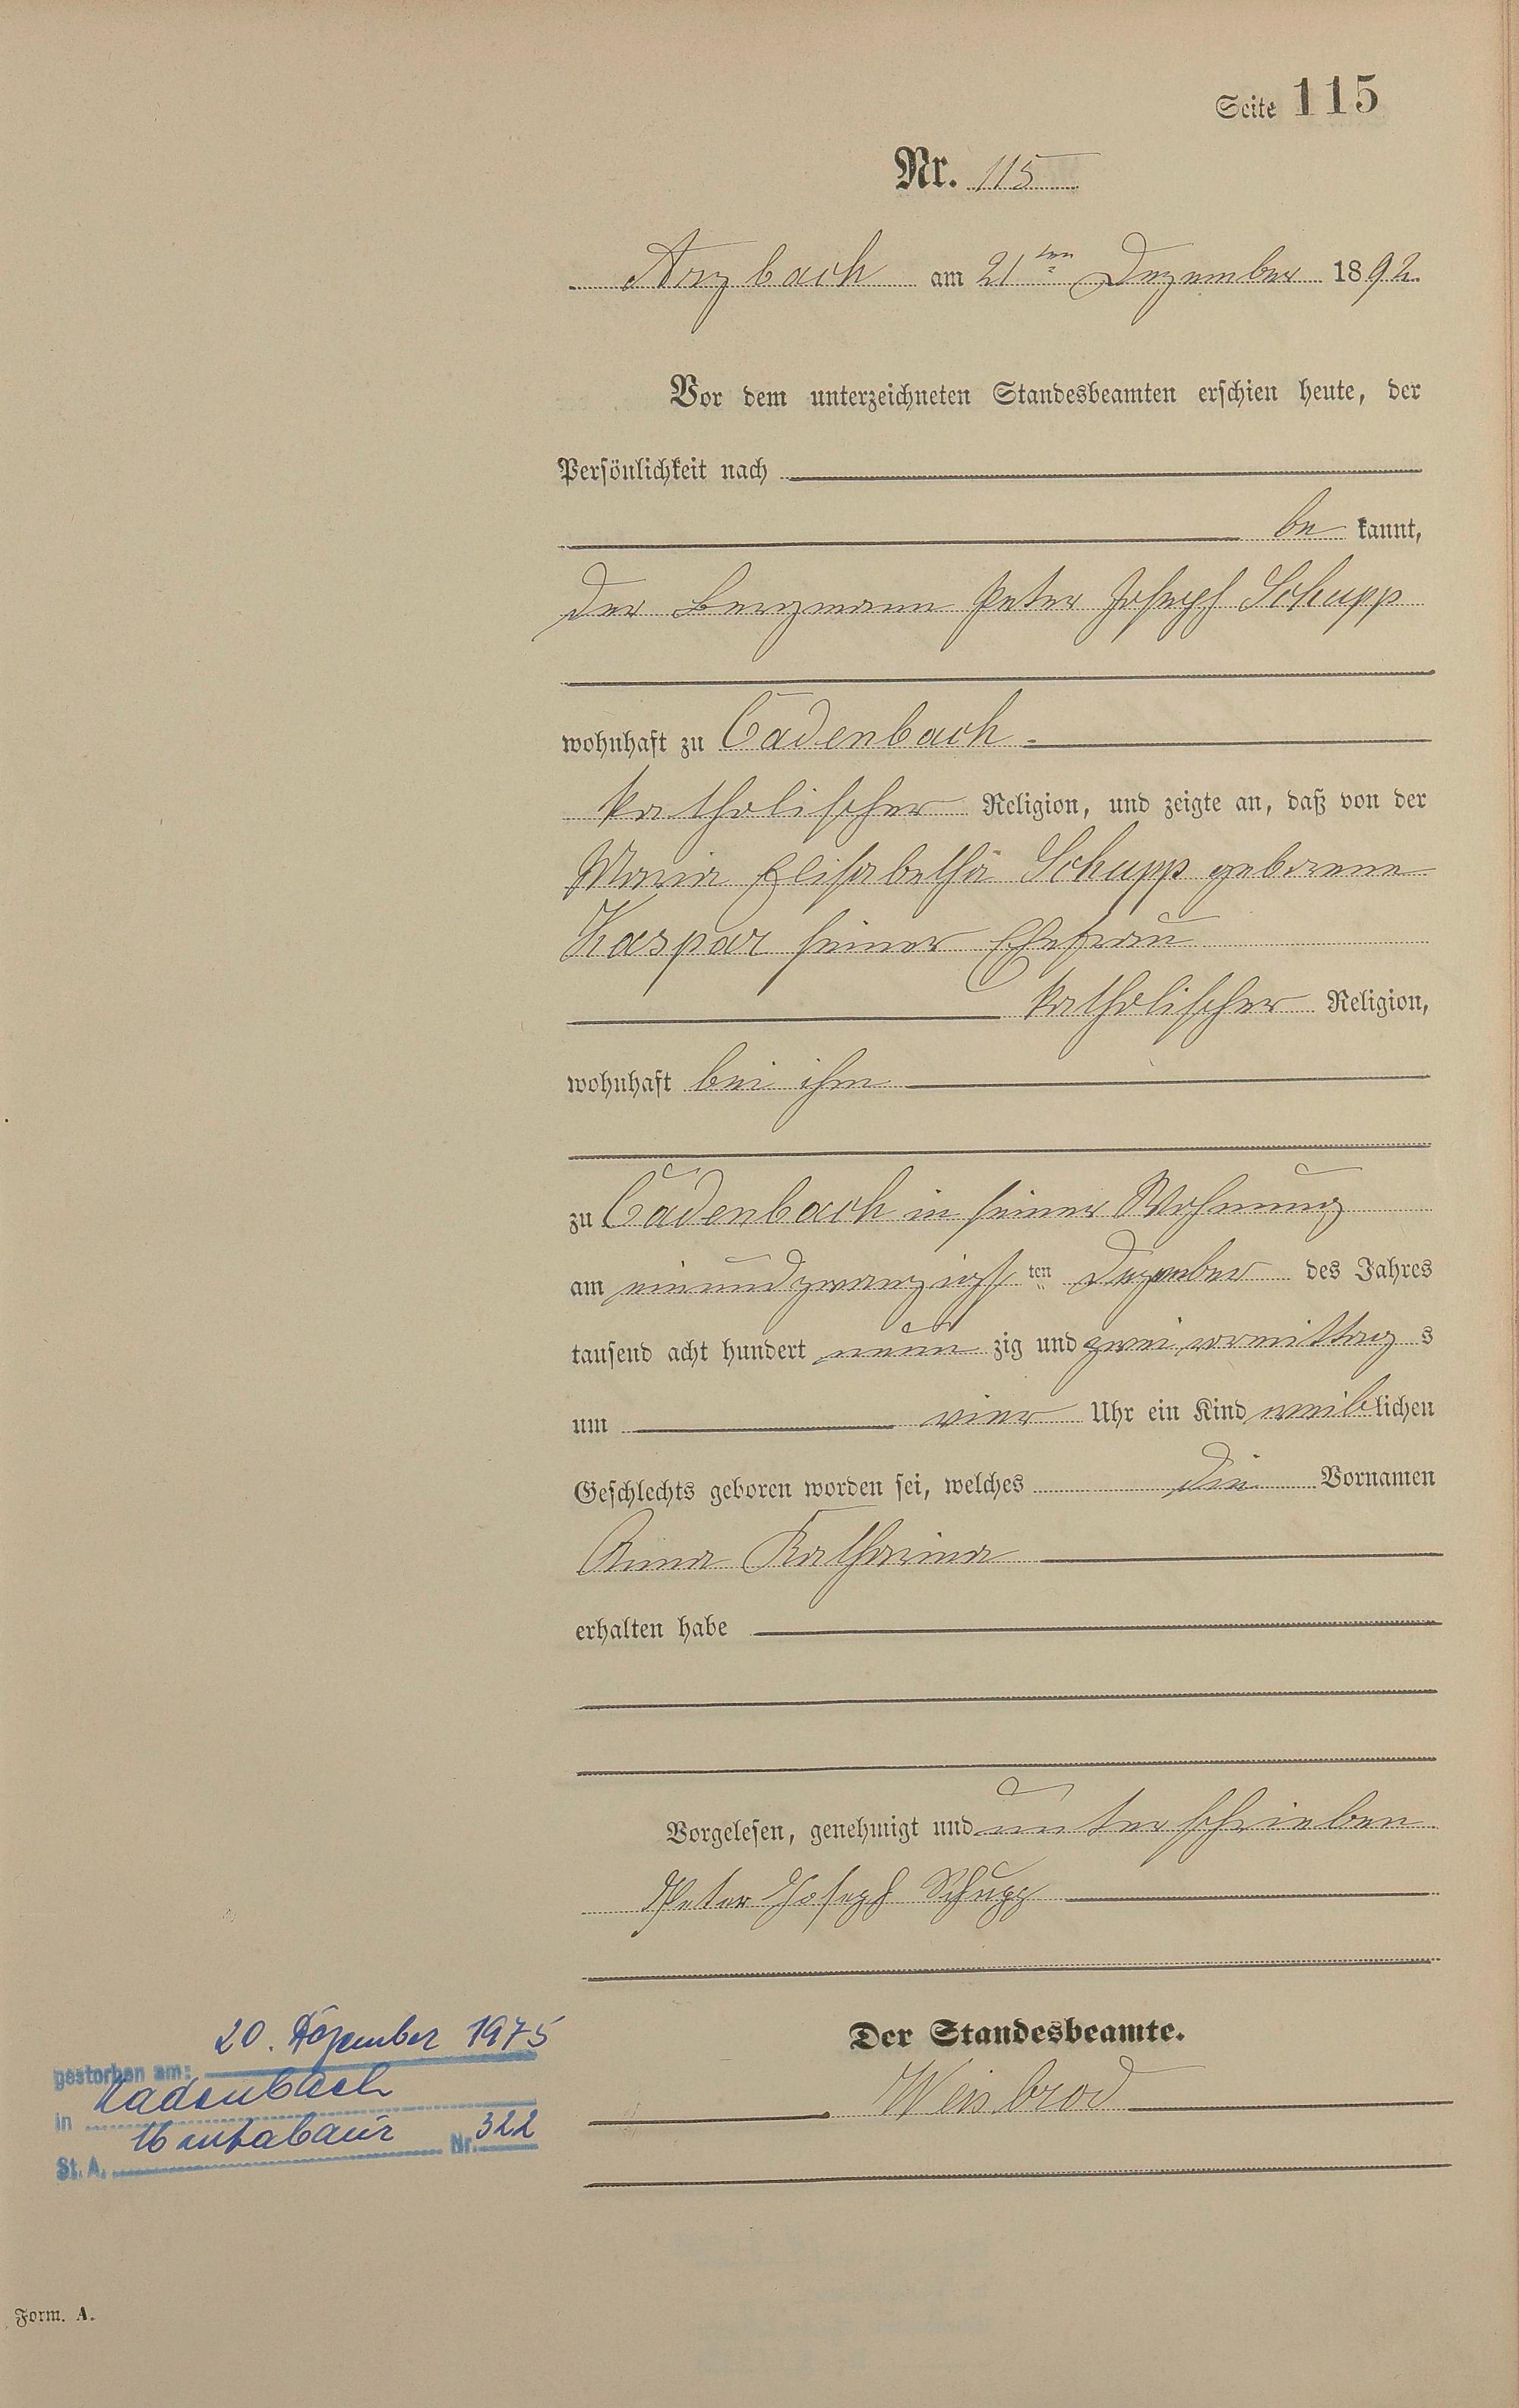 Seite 115
Nr. 115
Arzbach am 21ten Dezember 1892.
Vor dem unterzeichneten Standesbeamten erschien heute, der
Persönlichkeit nach
be kannt,
der Bergmann Peter Joseph Schupp
wohnhaft zu Cadenbach
katholischer Religion, und zeigte an, daß von der
Maria Elisabetha Schupp geborene
Kaspar seiner Ehefrau
katholischer Religion,
wohnhaft bei ihm
zu Cadenbach in seiner Wohnung
am einundzwanzigsten Dezember des Jahres
tausend acht hundert neun zig und zwei vormittags
um vier Uhr ein Kind weiblichen
Geschlechts geboren worden sei, welches die Vornamen
Anna Katharina
erhalten habe
Vorgelesen, genehmigt und unterschrieben
Peter Joseph Schupp
Der Standesbeamte.
Weisbrod
gestorben am: 20. Dezember 1975
in Kadenbach
St. A. Montabaur Nr. 322
Form. A.